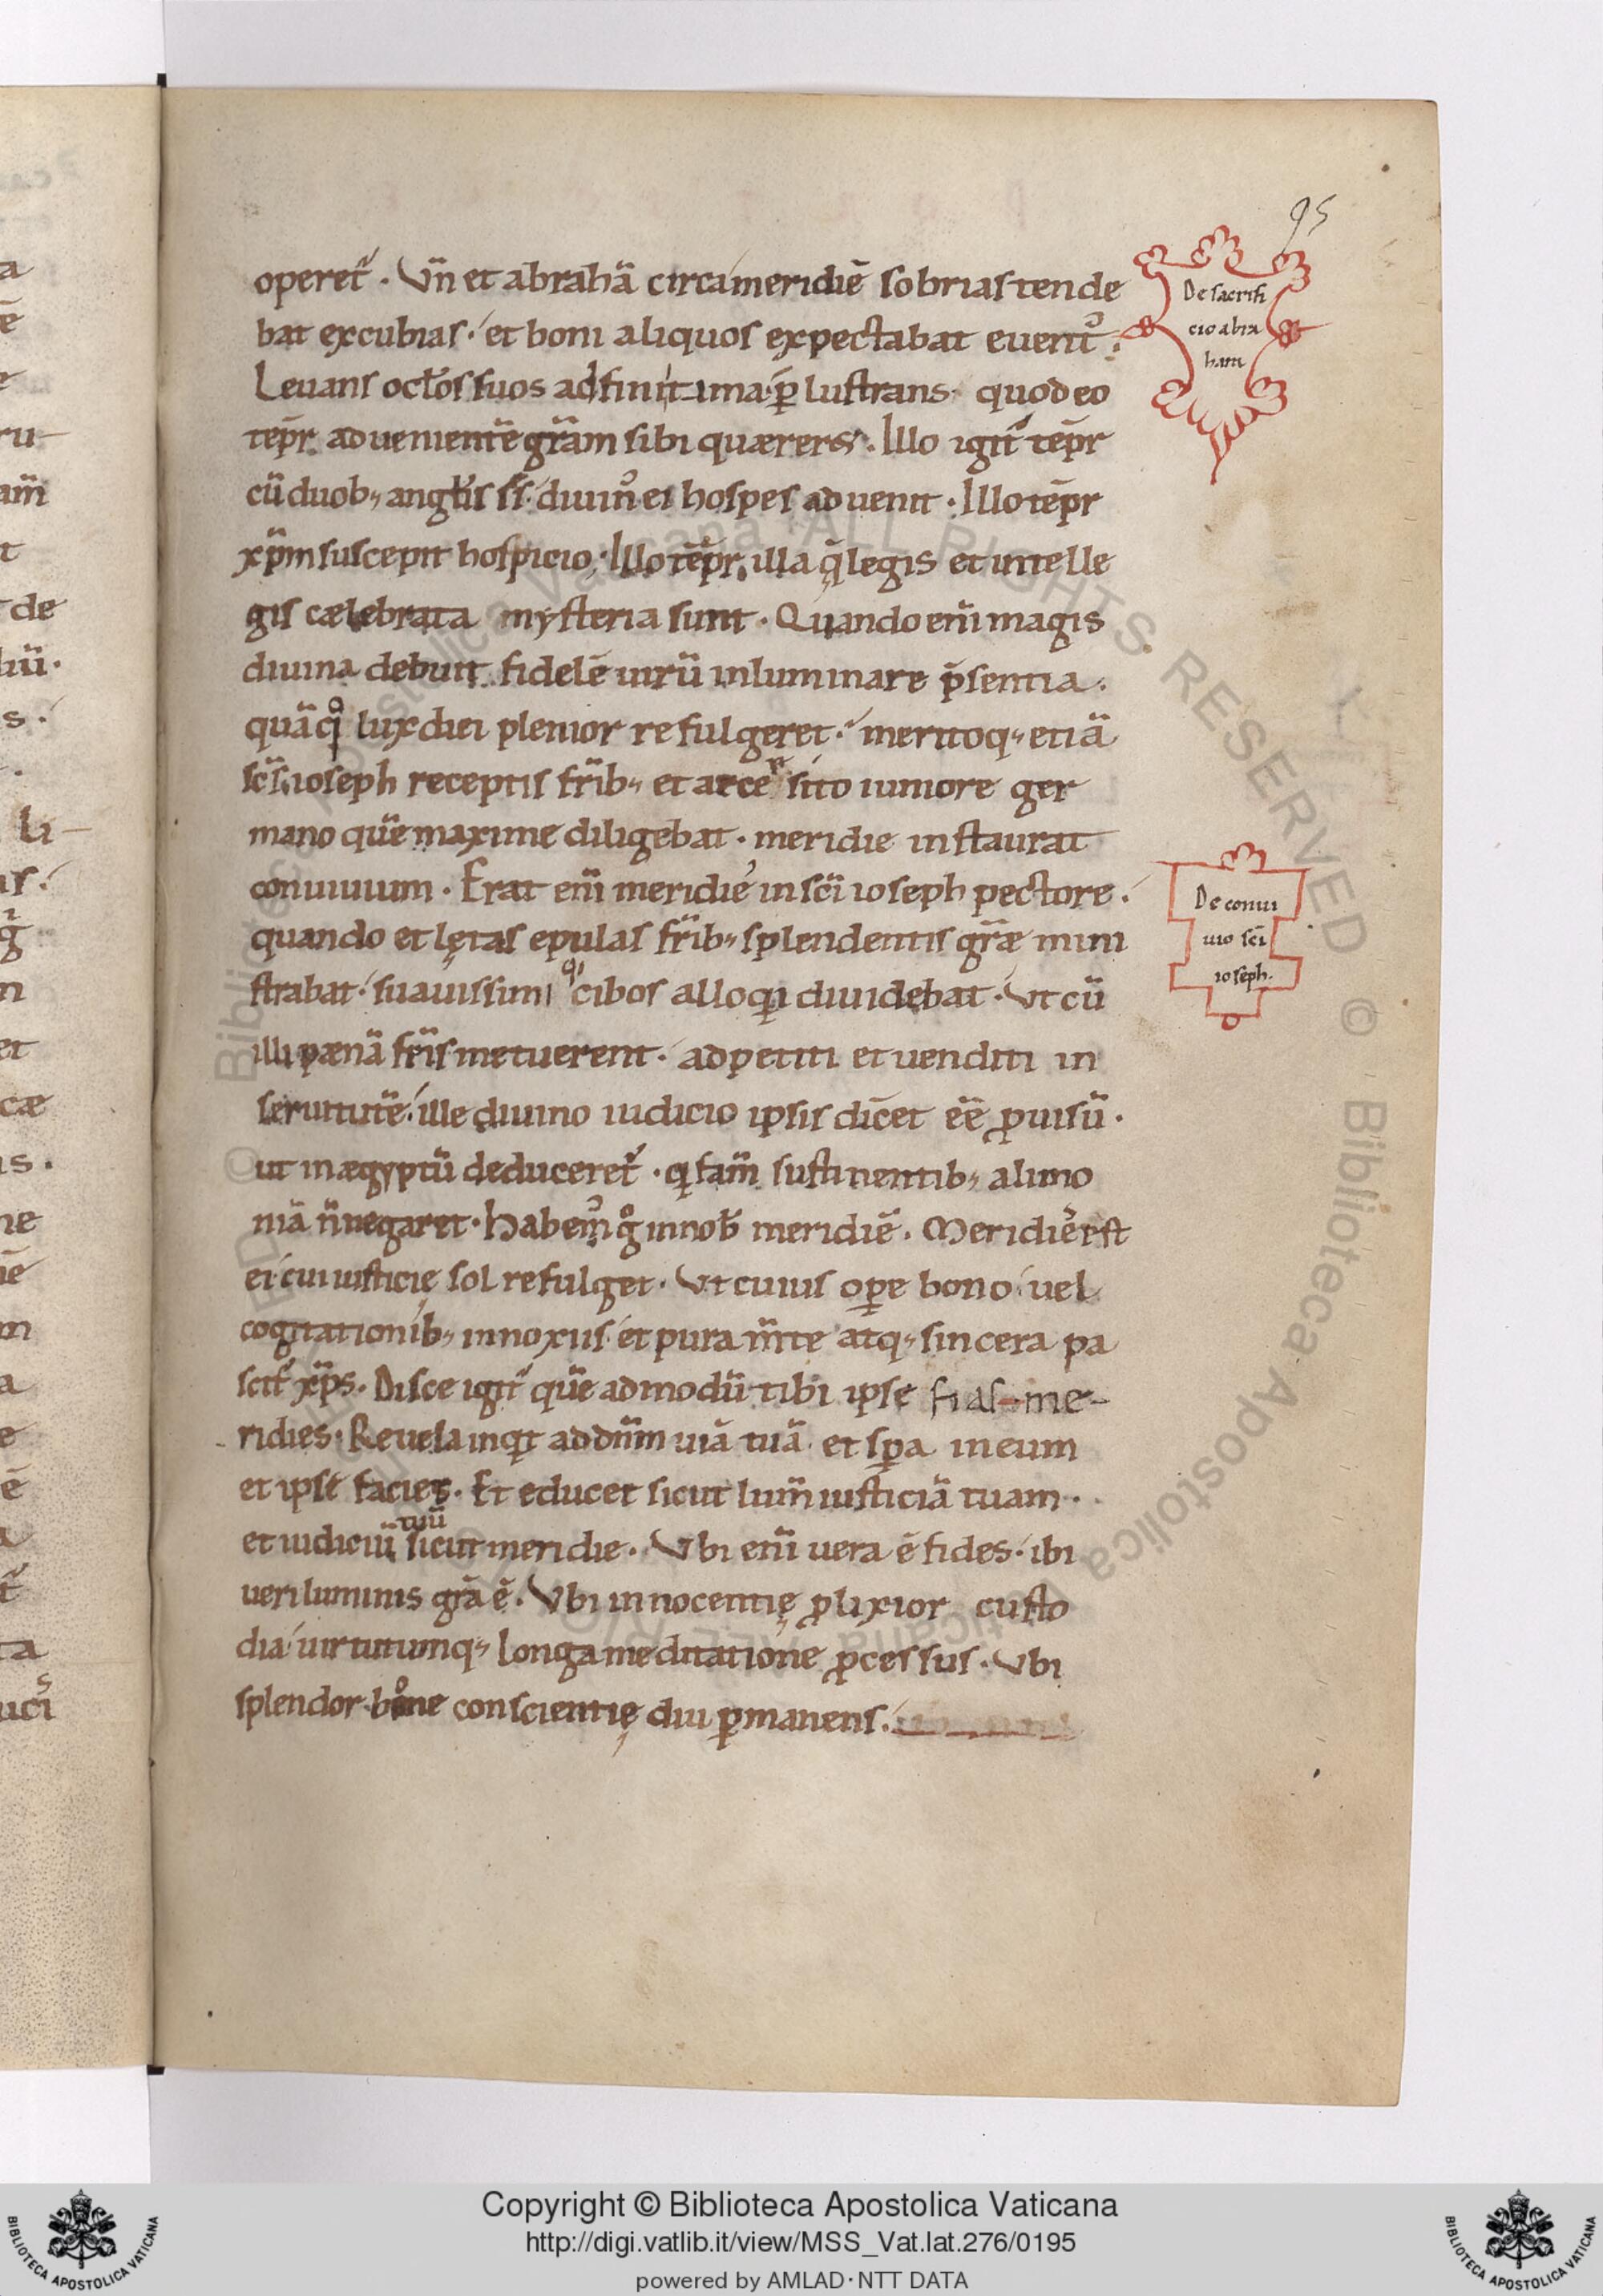 95
operet᷑. Vn̄ et abrahā circa meridiē sobrias tende
bat excubias. et boni aliquos expectabat euent᷒.
Leuans oct̄os suos ad finitima p̲lustrans. quod eo
tēpr̄ aduenientē gr̄am sibi quæreret. Illo igit᷑ tēpr̄
cū duob; angłis sꝭ diuin᷒ ei hospes aduenit. Illo tēpr̄
xp̄m suscepit hospicio. Illo tēpr̄ illa q̄ legis et intelle
gis cælebrata mysteria sunt. Quando eni̅ magis
diuina debuit fidelē uirū inluminare p̄sentia.
quā qͦ lux diei plenior refulgeret. meritoq; etiā
sc̄s ioseph receptis fr̄ib; et arcersito iuniore ger
mano quē maxime diligebat. meridie instaurat
conuiuium. Erat eni̅ meridie in sc̄i ioseph pectore.
quando et lętas epulas fr̄ib; splendentis gr̄æ mini
strabat. suauissimi q; cibos alloq̲i diuidebat. Vt cū
illi pænā fr̄is metuerent. adpetiti et uenditi in
seruitutē. ille diuino iudicio ipsis dic̄et eē̄ ꝓuisū.
ut in ægyptū deduceret᷑. q famē sustinentib; alimo
niā n̄ negaret. Habem᷒ gͦ in nob̄ meridiē. Meridiē est
ei cui iusticię sol refulget. Vt cuius oꝑe bono uel
cogitationib; innoxiis et pura m̄te atq; sincera pa
scit᷑ xp̄s. Disce igit᷑ quē admodū tibi ipse fias me-
ridies. Reuela inqt̄ ad dn̄m uiā tuā et sꝑa in eum
et ipse faciet. Et educet sicut lum̄ iusticiā tuam.
et iudiciū tuū sicut meridie. Vbi eni̅ uera ē fides. ibi
ueri luminis gr̄a ē. Vbi innocentię ꝓlixior custo
dia uirtutumq; longa meditatione ꝓcessus. Vbi
splendor bone conscientię diu ꝑmanens.
De sacrifi
cio abra
ham
De conui
uio sc̄i
ioseph.
© Biblioteca Apostolica Vaticana ALL RIGHTS RESERVED
© Biblioteca Apostolica Vaticana ALL RIGHTS RESERVED
Copyright © Biblioteca Apostolica Vaticana
http://digi.vatlib.it/view/MSS_Vat.lat.276/0195
powered by AMLAD·NTT DATA
BIBLIOTECA APOSTOLICA VATICANA
BIBLIOTECA APOSTOLICA VATICANA